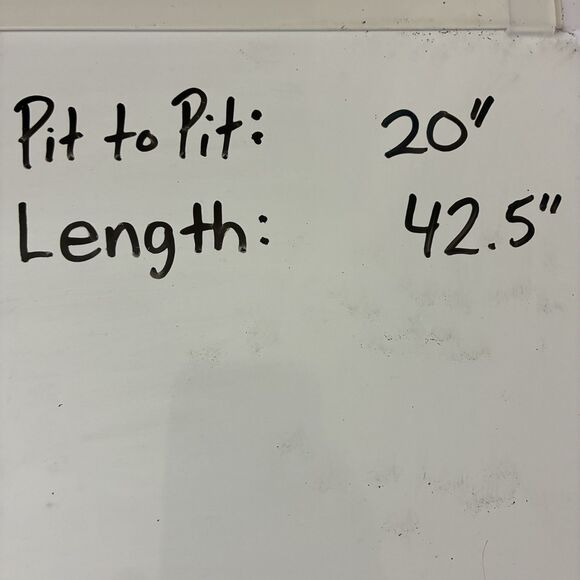 Pit to Pit: 20"
Length: 42.5"